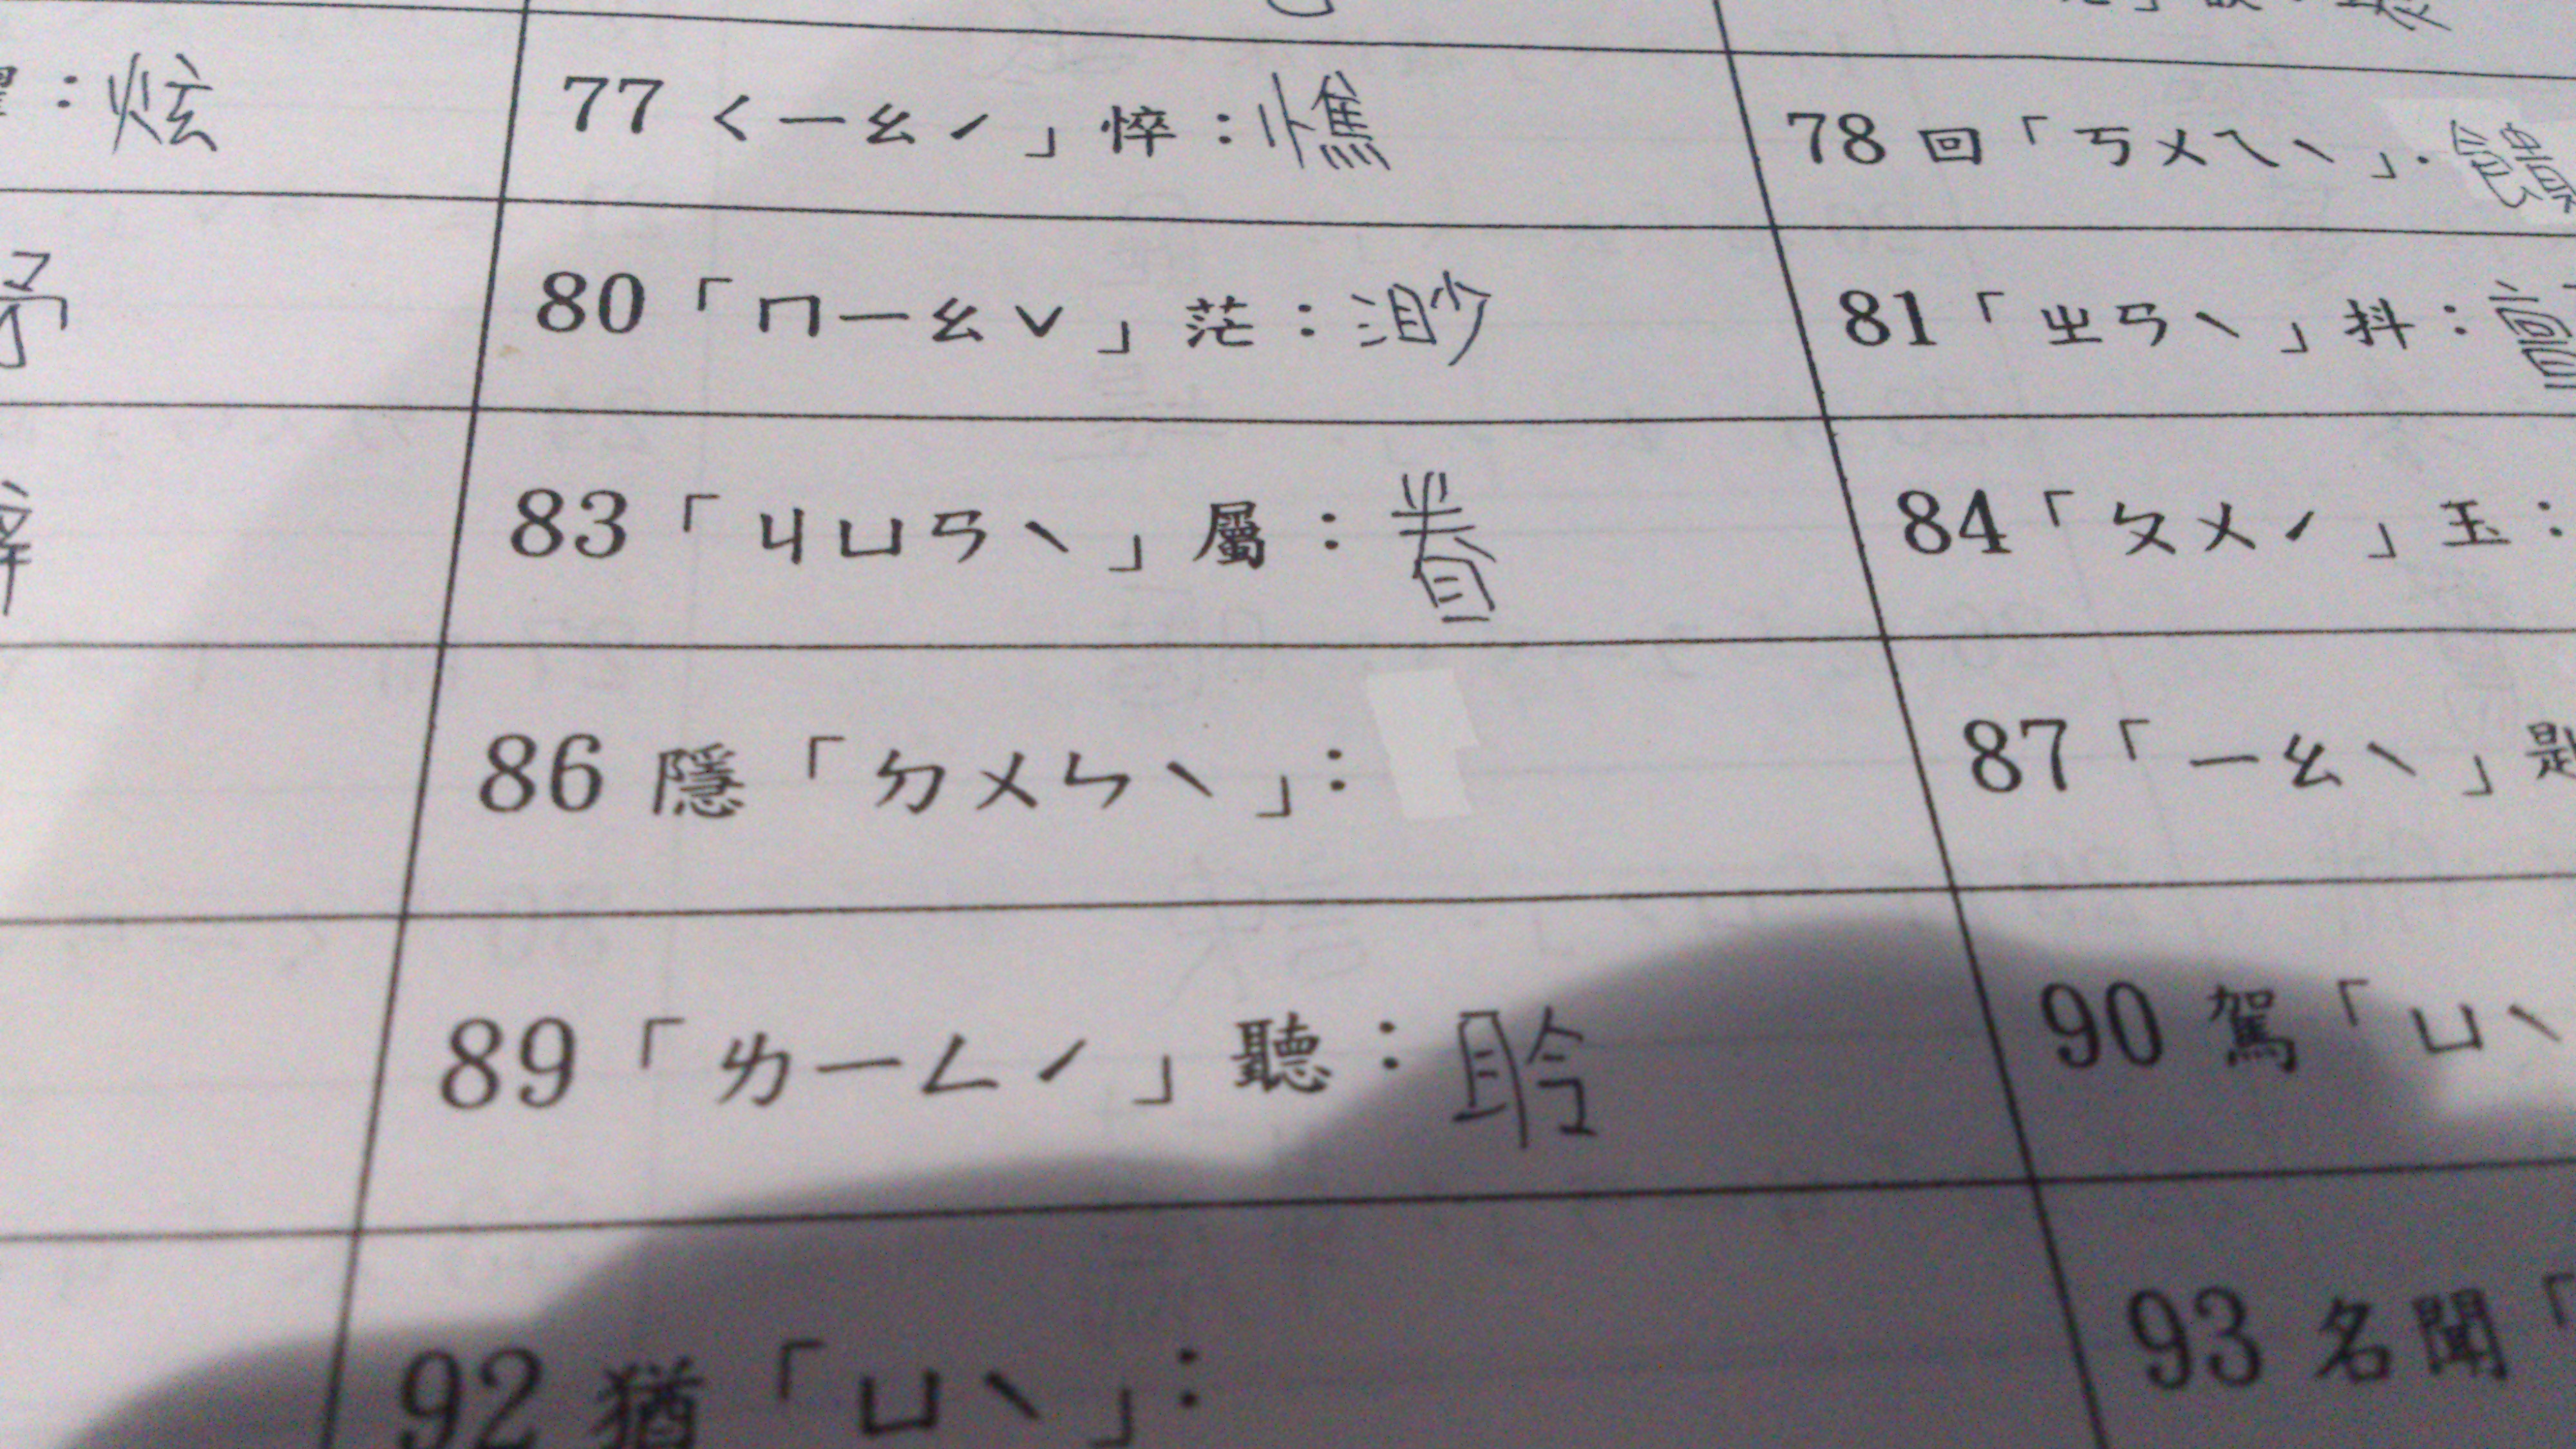 ：炫
77ㄑㄧㄠˊ」悴：憔
78回「ㄎㄨㄟˋ」：饋
予
80「ㄇㄧㄠˇ」茫：渺
81「ㄓㄢˋ」抖：
83「ㄐㄩㄢˋ」屬：眷
84「ㄆㄨˊ」玉：
86 隱「ㄉㄨㄣˋ」：
87「ㄧㄠˋ」匙
89「ㄌㄧㄥˊ」聽：聆
90 駕「ㄩˋ
92 猶「ㄩˋ」：
93 名聞「